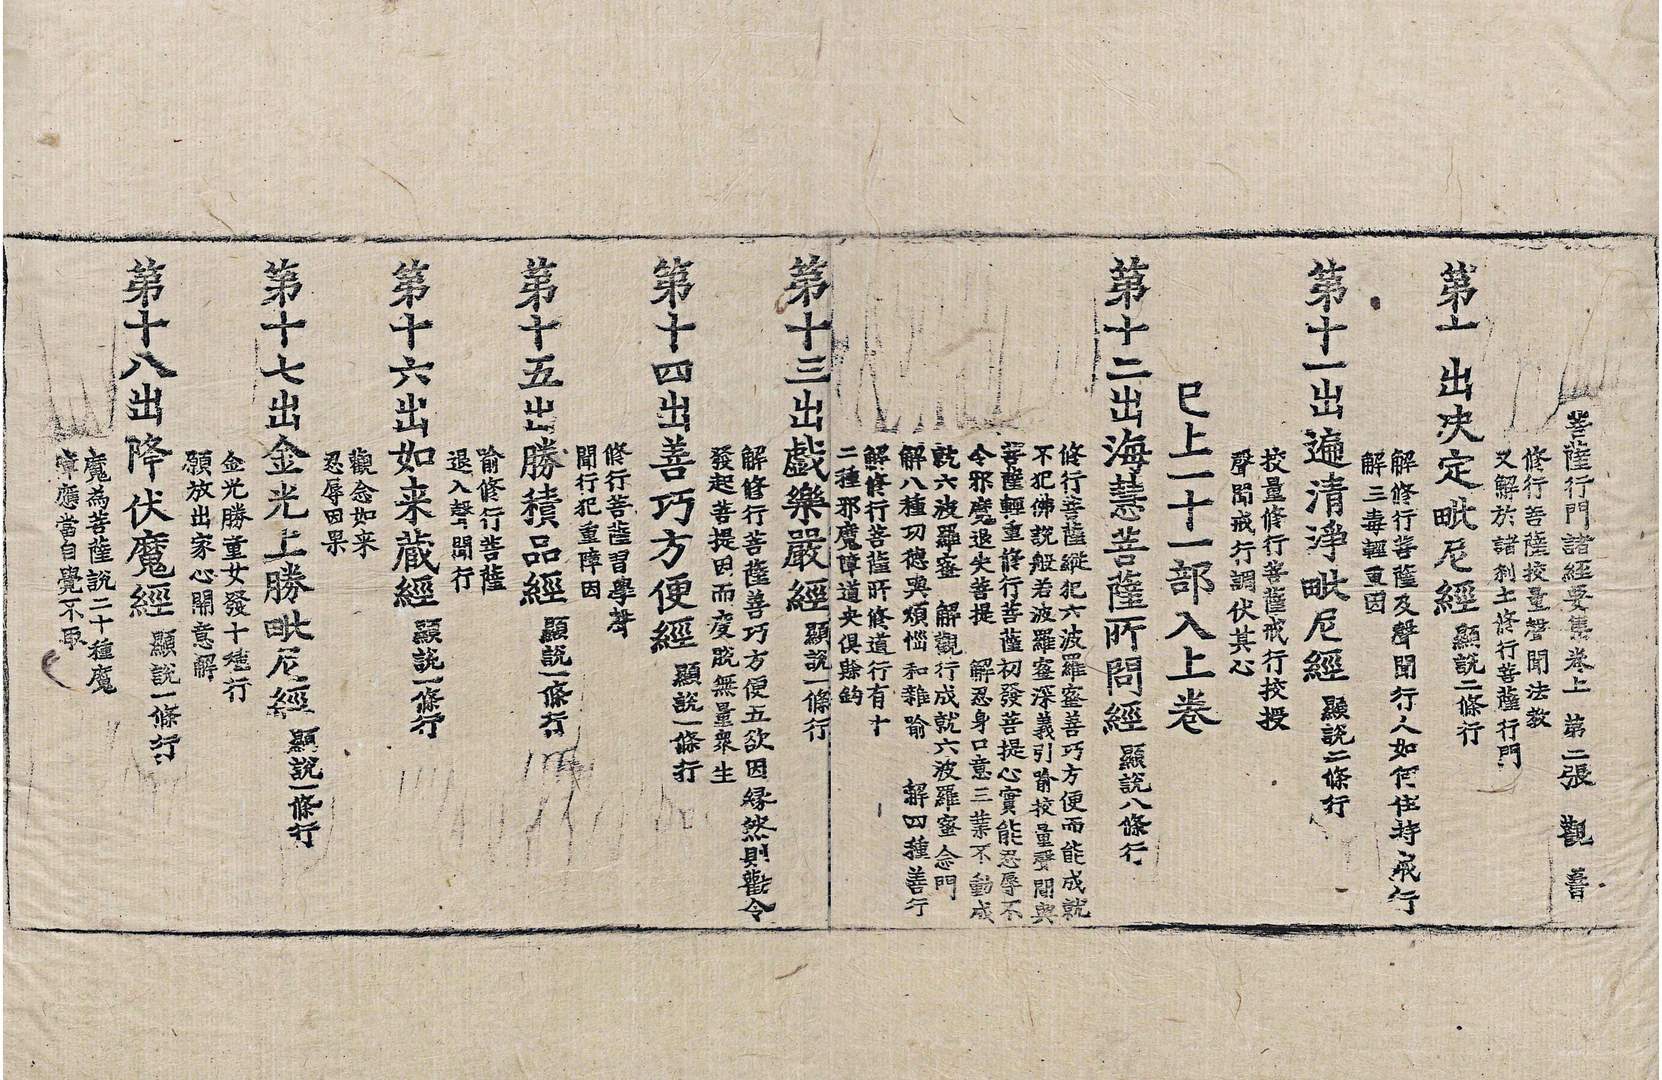 菩薩行門諸經要集卷上 第二張 觀善
修行菩薩挍量聲聞法教
又解於諸刹土修行菩薩行門
第十 出决定毗尼經 顯説二條行
解修行菩薩及聲聞行人如何住持戒行
解三毒輕重因
第十一出遍清淨毗尼經 顯説二條行
挍量修行菩薩戒行挍授
聲聞戒行調伏其心
已上一十一部入上卷
第十二出海慧菩薩所問經 顯説八條行
修行菩薩縱犯六波羅蜜善巧方便而能成就
不犯佛説般若波羅蜜深義引喻挍量聲聞與
菩薩輕重修行菩薩初發菩提心實能忍辱不
令邪魔退失菩提 解忍身口意三業不動成
就六波羅蜜 解觀行成就六波羅蜜念門
解八種功德與煩惱和雜喻 解四種善行
解修行菩薩所修道行有十
二種邪魔障道夾俱賒鈎
第十三出戲樂嚴經 顯説一條行
解修行菩薩善巧方便五欲因緣然則勸令
發起菩提因而度脱無量衆生
第十四出善巧方便經 顯説一條行
修行菩薩習學聲
聞行犯重障因
第十五出勝積品經 顯説一條行
喻修行菩薩
退入聲聞行
第十六出如来蔵經 顯説一條行
觀念如来
忍辱因果
第十七出金光上勝毗尼經 顯説一條行
金光勝童女發十種行
願放出家心開意解
第十八出降伏魔經 顯説一條行
魔為菩薩説二十種魔
障應當自覺不取